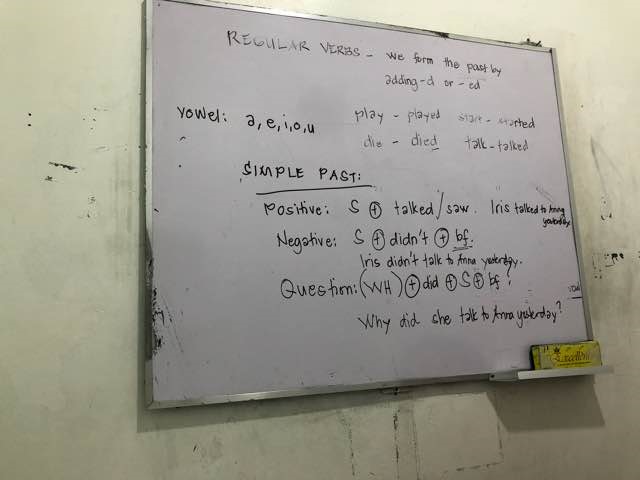 REGULAR VERBS - we form the past by
adding -d or -ed
vowel: a, e, i, o, u
play - played start - started
die - died talk - talked
SIMPLE PAST:
Positive: S + talked / saw. Iris talked to Anna
yesterday.
Negative: S + didn't + bf.
Iris didn't talk to Anna yesterday.
Question: (WH) + did + S + bf?
Why did she talk to Anna yesterday?